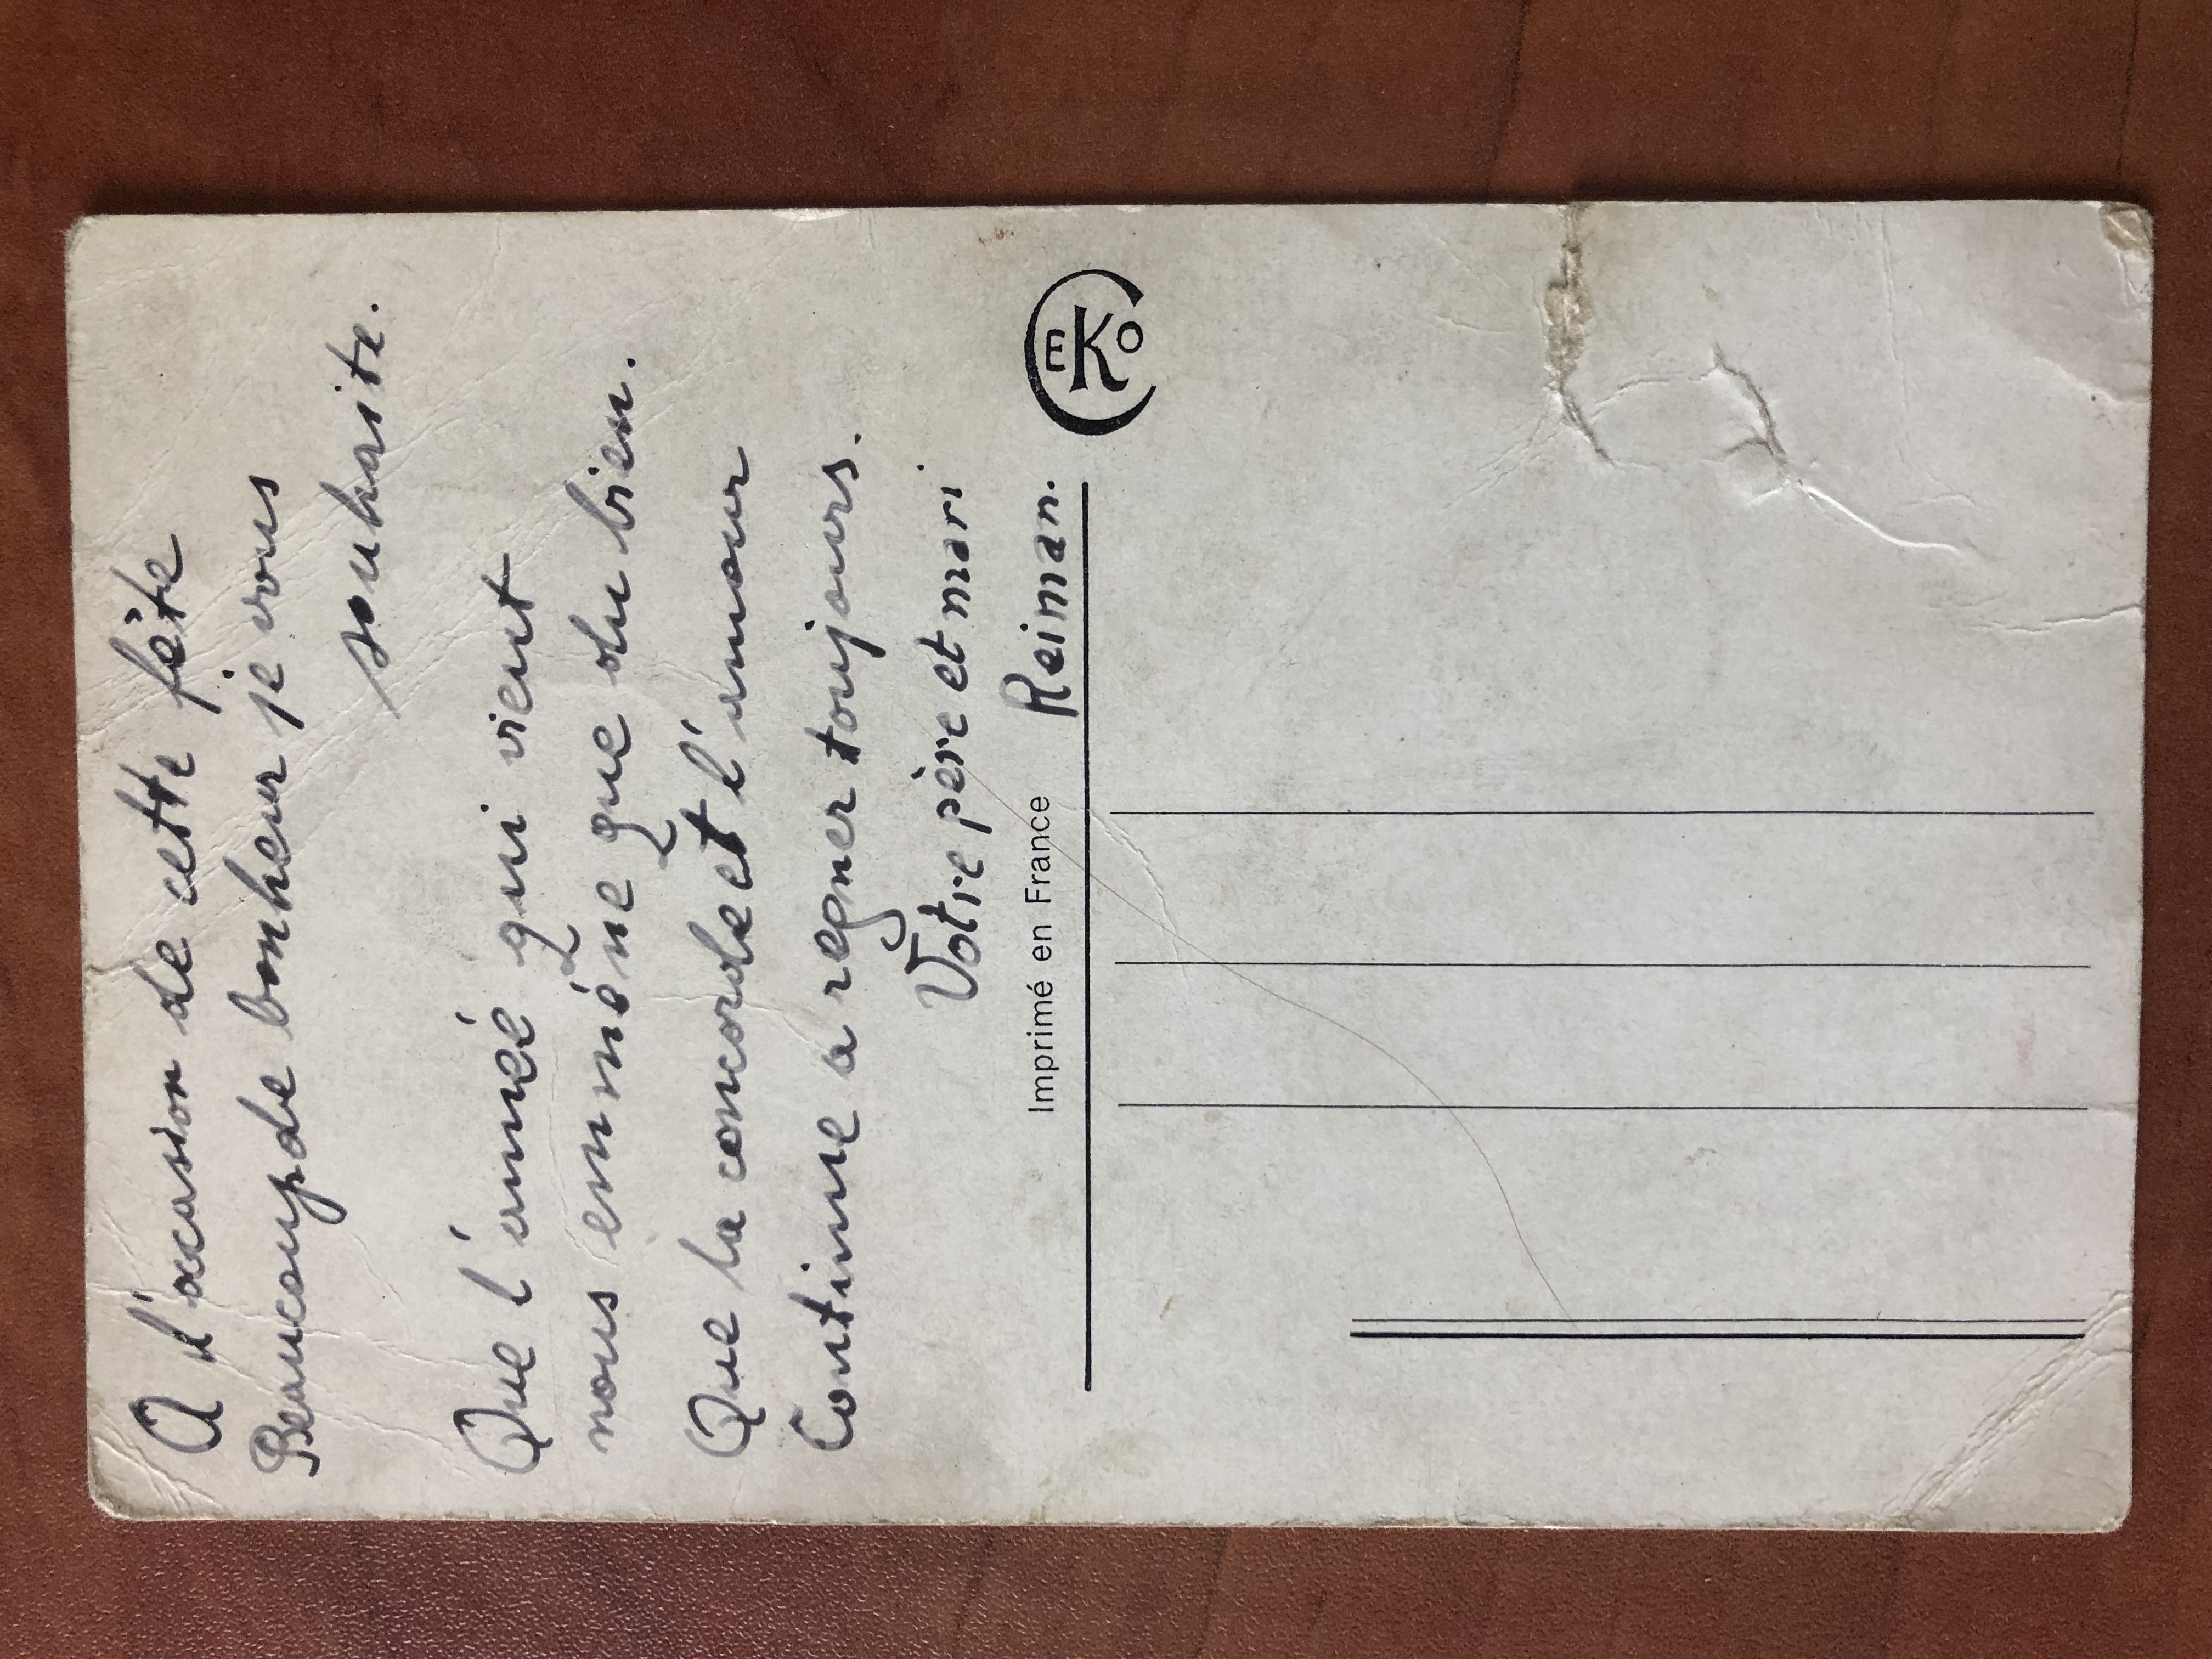 A l'occasion de cette fête
Beaucoup de bonheur je vous
souhaite.
Que l'année qui vient
nous emmène que du bien.
Que la concorde et l'amour
Continue a regner toujours.
Votre père et mari
Reiman.
Imprimé en France
EKO